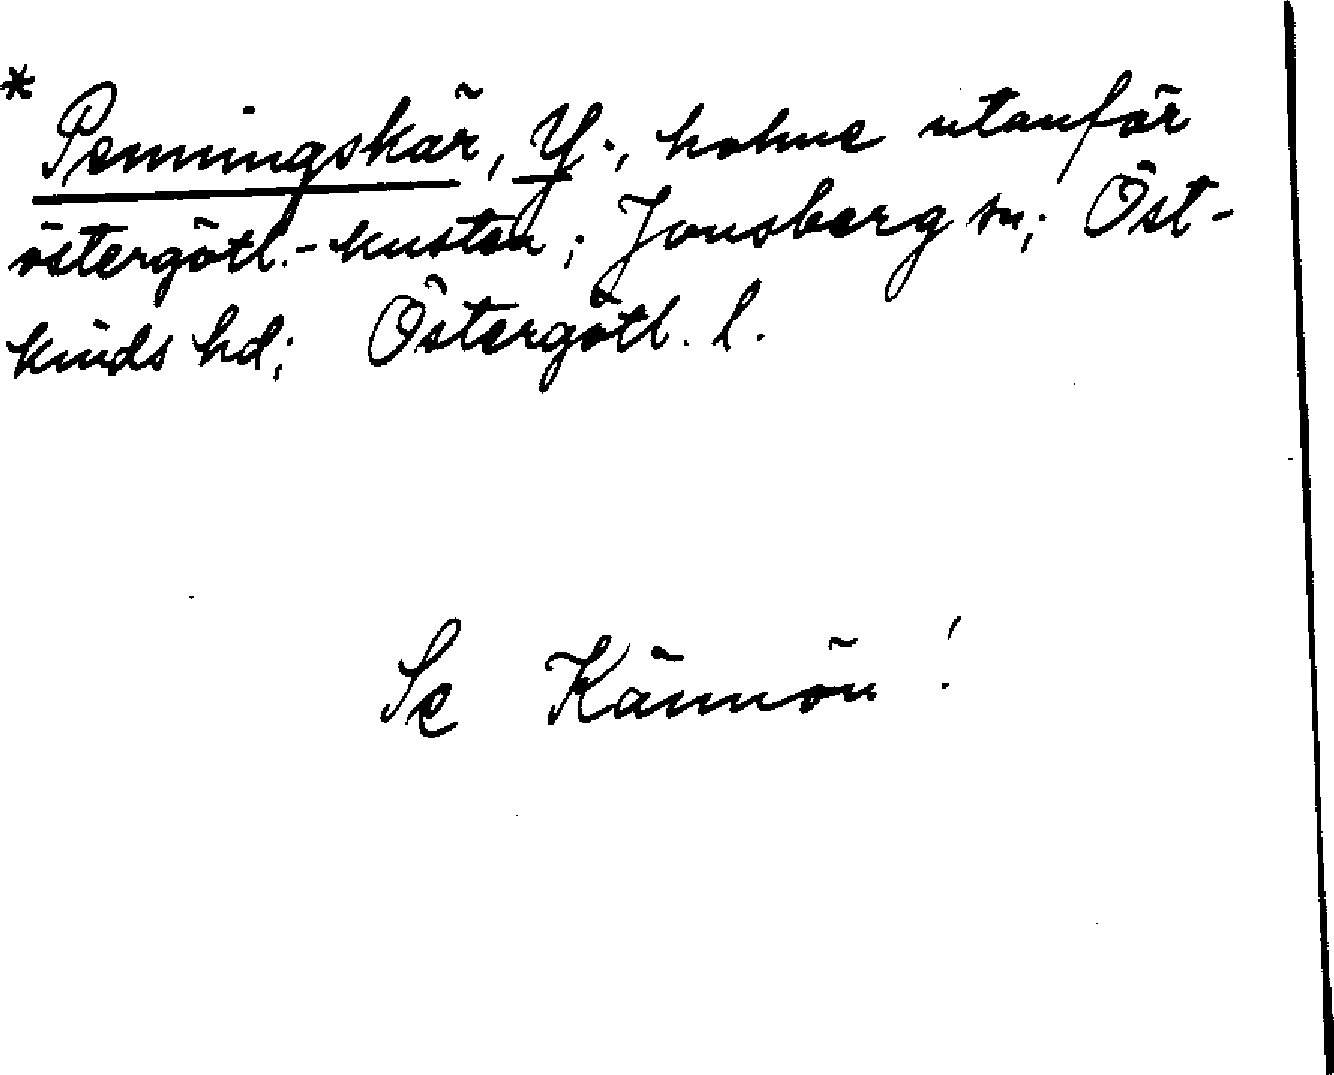 * Penningskär, Y., holme utanför
östergötl.-kusten; Jonsberg sn; Öst-
kinds hd; Östergötl. l.
Se Kännön!